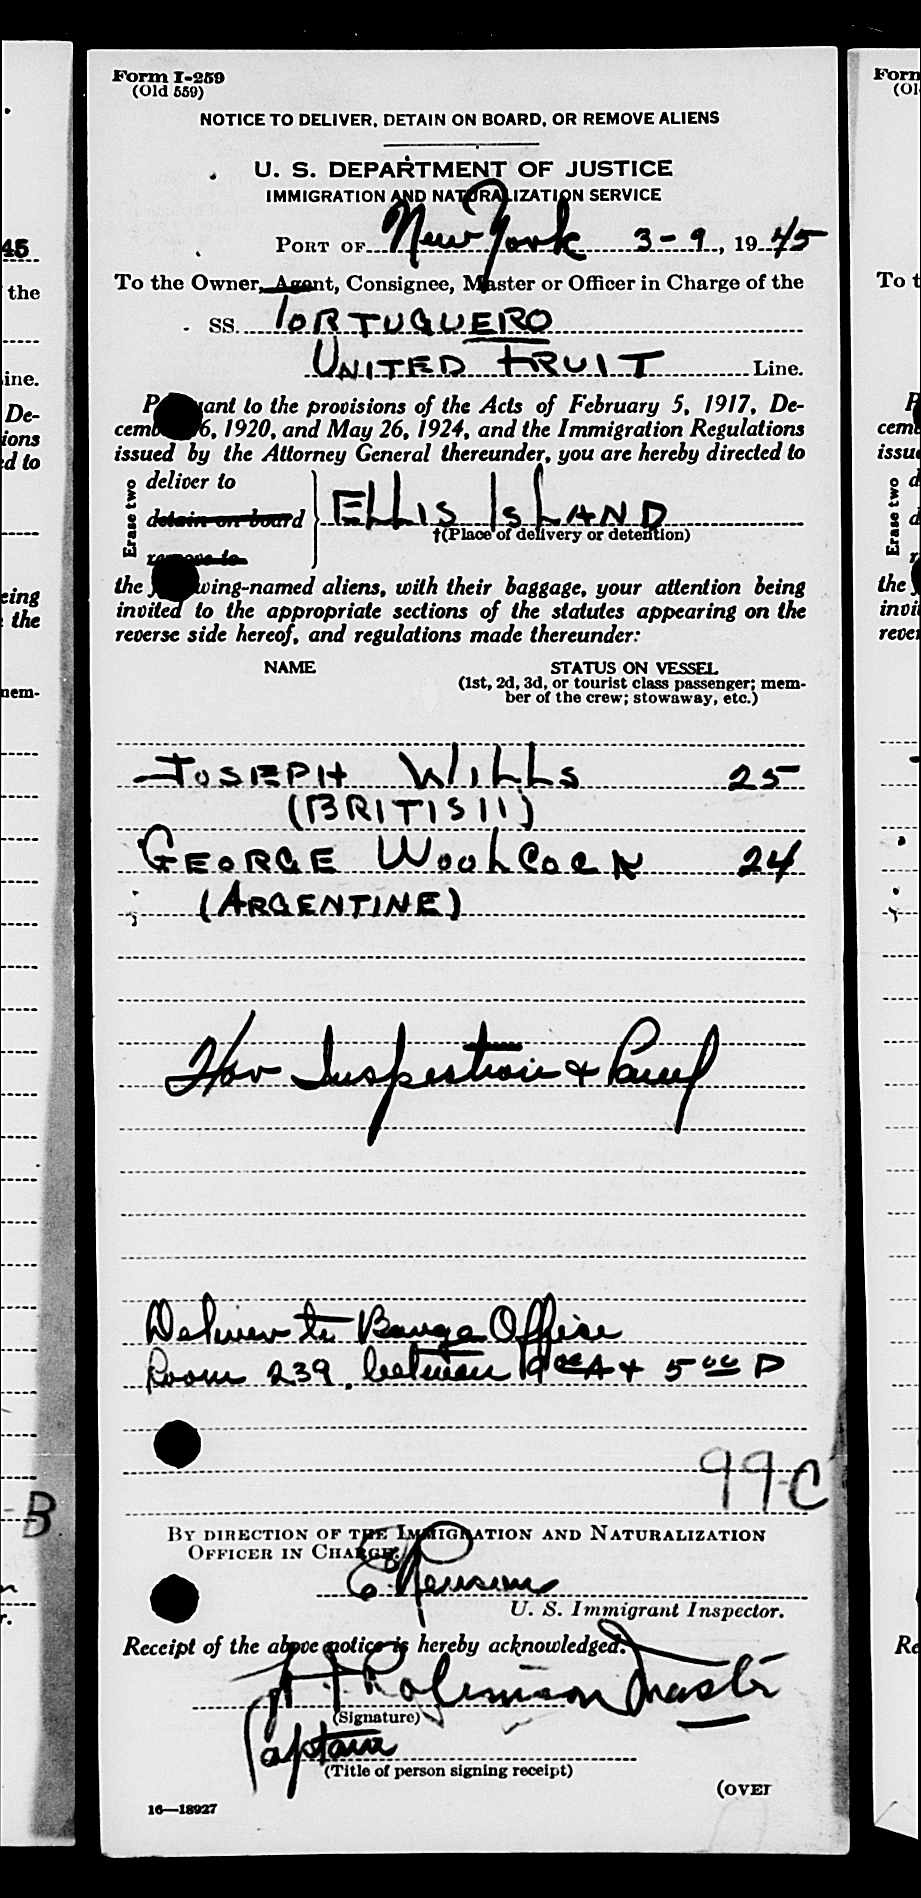 Form I-259
(Old 559)
NOTICE TO DELIVER, DETAIN ON BOARD, OR REMOVE ALIENS
U. S. DEPARTMENT OF JUSTICE
IMMIGRATION AND NATURALIZATION SERVICE
PORT OF New York 3-9, 1945
To the Owner, Agent, Consignee, Master or Officer in Charge of the
SS. TORTUGUERO
UNITED FRUIT Line.
Pursuant to the provisions of the Acts of February 5, 1917, De-
cember 6, 1920, and May 26, 1924, and the Immigration Regulations
issued by the Attorney General thereunder, you are hereby directed to
Erase two
deliver to
detain on board ELLIS ISLAND
†(Place of delivery or detention)
remove to
the following-named aliens, with their baggage, your attention being
invited to the appropriate sections of the statutes appearing on the
reverse side hereof, and regulations made thereunder:
NAME STATUS ON VESSEL
(1st, 2d, 3d, or tourist class passenger; mem-
ber of the crew; stowaway, etc.)
JOSEPH WILLS 25
(BRITISH)
GEORGE WOOLCOCK 24
(ARGENTINE)
For Inspection &
Deliver to Barge Office
Room 239, between 9 00 A + 5 00 P
99-C
BY DIRECTION OF THE IMMIGRATION AND NATURALIZATION
OFFICER IN CHARGE.
U. S. Immigrant Inspector.
Receipt of the above notice is hereby acknowledged.
Robinson Master
(Signature)
Captain
(Title of person signing receipt)
(OVER
16—18927